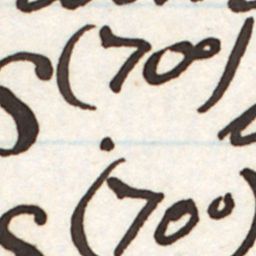 S(70°)
S(70°)